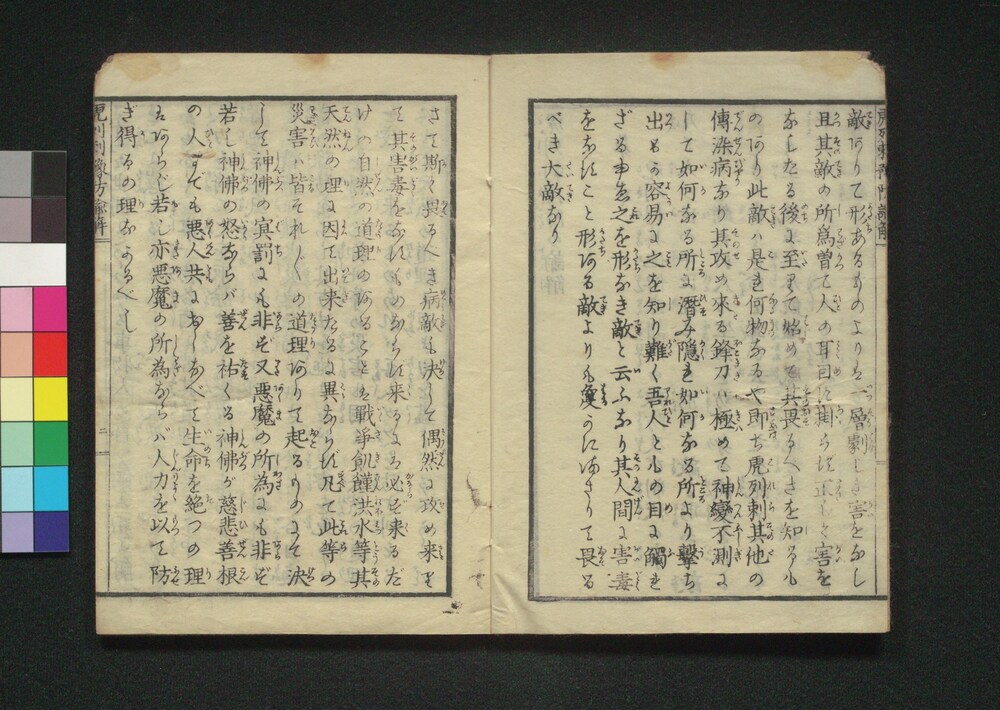 敵ありて形あるものよりは一層劇しき害をなし
且其敵の所為曽て人の耳目に掛らず正しく害を
なしたる後に至りて始めて其畏るべきを知るも
のあり此敵ハ是れ何物なるや即ち虎列剌其他の
傳染病なり其攻め來る鋒刀ハ極めて神變不測に
して如何なる所に潜み隠れ如何なる所より撃ち
出るか容易に之を知り難く吾人ともの目に觸れ
ざる由ゑ之を形なき敵と云ふなり其人間に害毒
をなすこと形ある敵よりも遙かにまさりて畏る
べき大敵なり
さて斯く畏るへき病敵も決して偶然に攻め来り
て其害毒をなすものならす来るにハ必ず来るだ
けの自然の道理のあることは戰爭飢饉洪水等其
天然の理に因て出来たるに異ならす凡て此等の
災害ハ皆それ〳〵の道理ありて起るものにて決
して神佛の冥罰にも非ず又悪魔の所為にも非ず
若し神佛の怒ならバ善を祐くる神佛が慈悲善根
の人までも悪人共におしなべて生命を絶つの理
はあらじ若し亦悪魔の所為ならバ人力を以て防
ぎ得るの理なかるへし
虎列剌豫防諭解
二